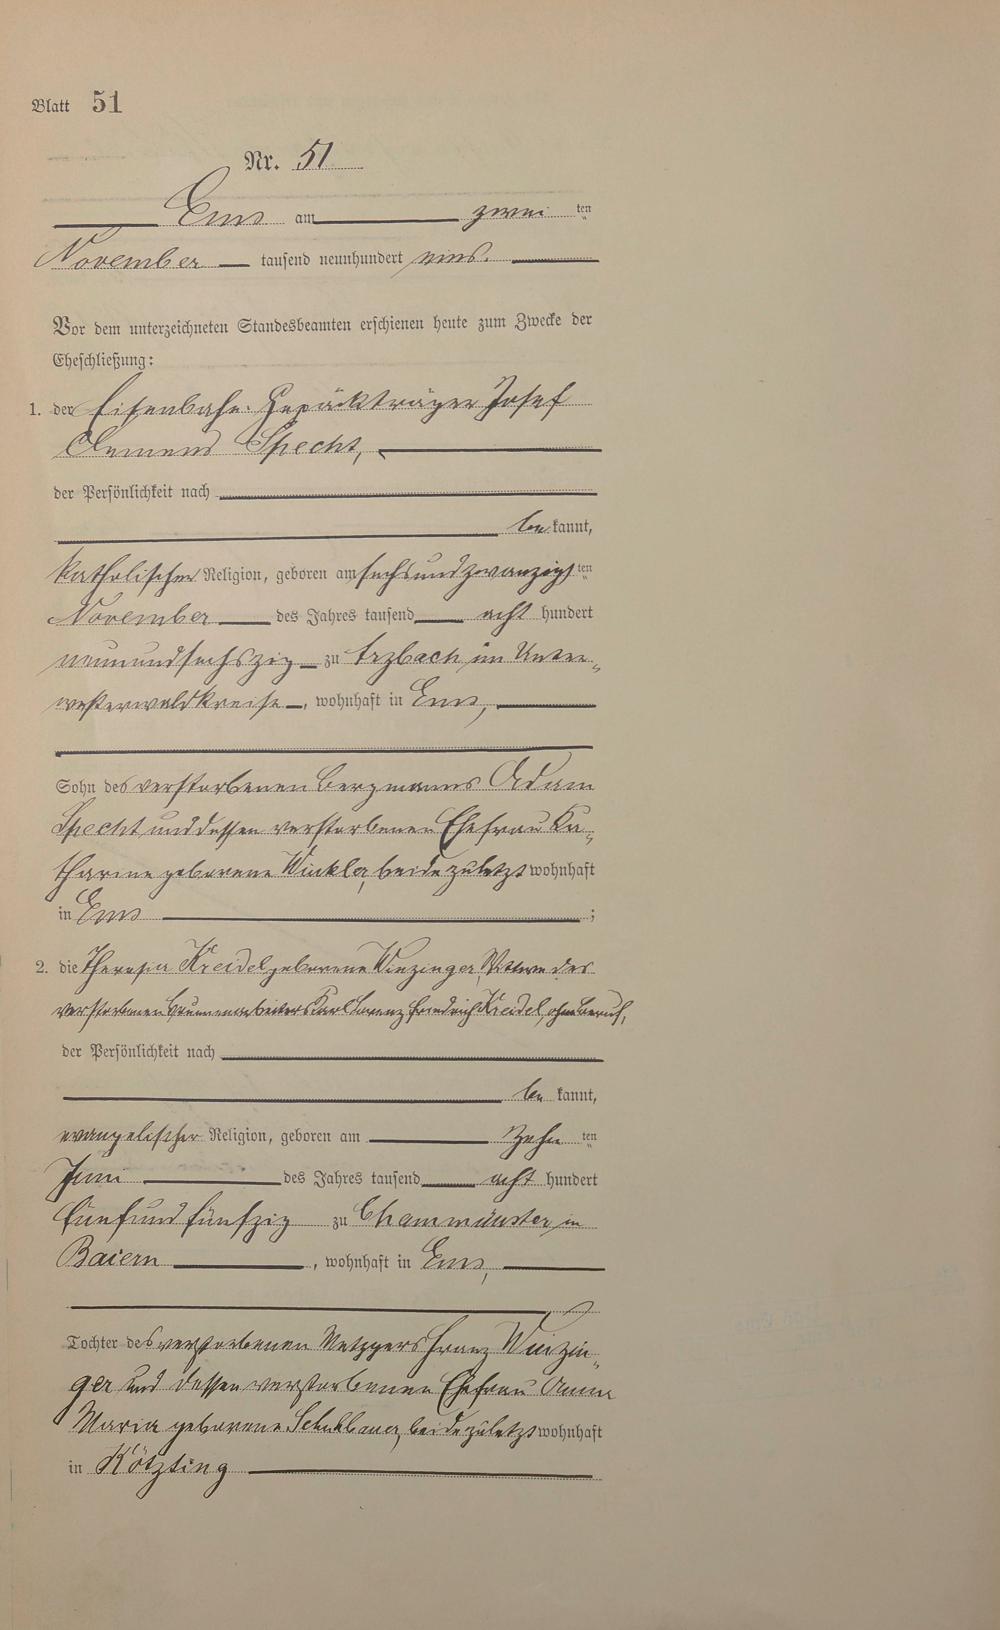 Blatt 51
Nr. 51
Ems am zwei ten
November tausend neunhundert eins.
Vor dem unterzeichneten Standesbeamten erschienen heute zum Zwecke der
Eheschließung:
1. der Eisenbahn-Gepäckträger Josef
Clemens Specht,
der Persönlichkeit nach
be kannt,
katholischer Religion, geboren am sechsundzwanzigs ten
November des Jahres tausend acht hundert
neunundsechszig zu Arzbach im Unter-
westerwaldkreise, wohnhaft in Ems,
Sohn des verstorbenen Bergmanns Adam
Specht und dessen verstorbenen Ehefrau Ka-
tharine geborene Winkler, beide zuletzt wohnhaft
in Ems ;
2. die Theresia Kreidel geborene Winzinger, Wittwe des
verstorbenen Brunnenarbeiters Karl Lorenz Friedrich Kreidel, ohne Beruf,
der Persönlichkeit nach
be kannt,
evangelischer Religion, geboren am zehn ten
Juni des Jahres tausend acht hundert
fünfundfünfzig zu Chammünster in
Baiern, wohnhaft in Ems,
Tochter des verstorbenen Metzgers Franz Winzin-
ger und dessen verstorbenen Ehefrau Anna
Maria geborene beide zuletzt wohnhaft
in Kötzting